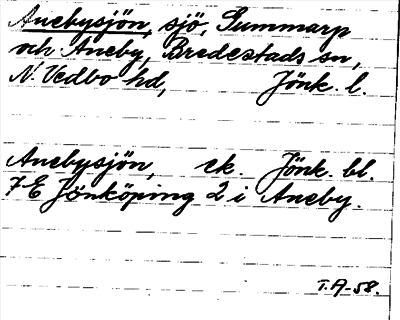 Anebysjön, sjö, Summarp
och Aneby, Bredestads sn,
N. Vedbo hd, Jönk. l.
Anebysjön, ek. Jönk. bl.
7E Jönköping 2 i Aneby.
T.A-58.